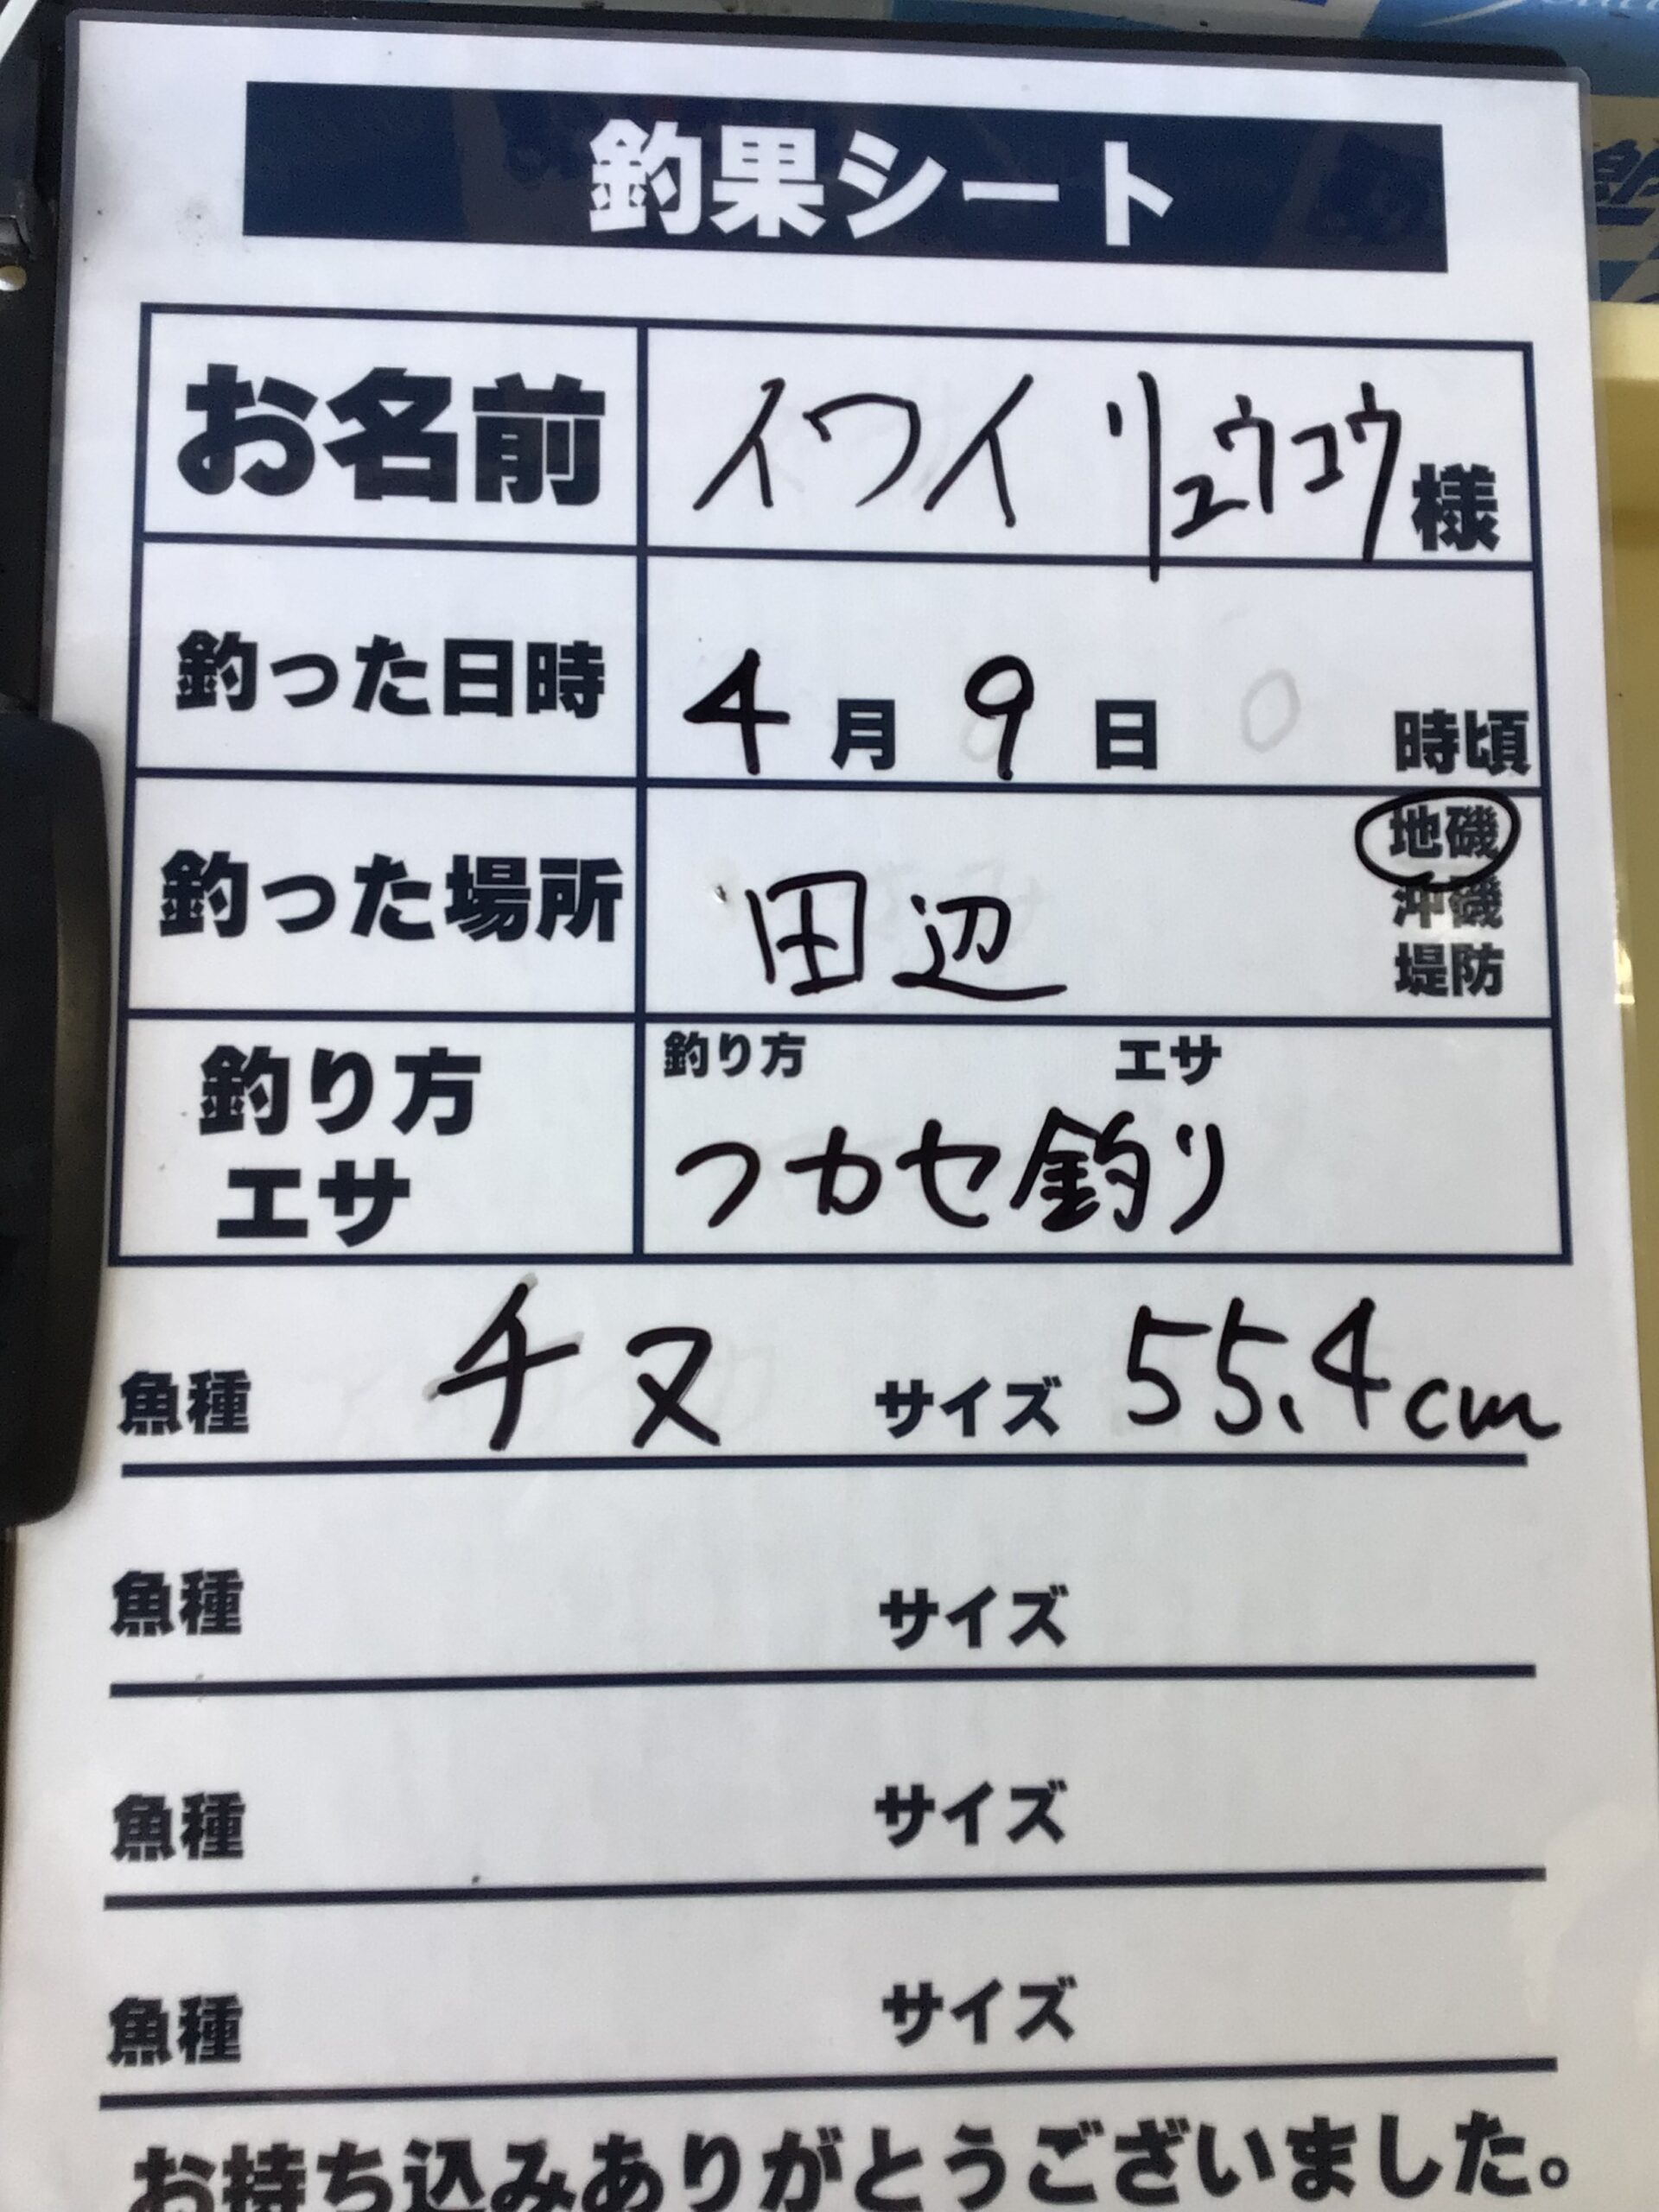 釣果シート
お名前 イワイ リュウコウ 様
釣った日時 4月9日 時頃
釣った場所 田辺 地磯
沖磯
堤防
釣り方 エサ
釣り方
エサ
フカセ釣り
魚種 チヌ サイズ 55.4cm
魚種 サイズ
魚種 サイズ
魚種 サイズ
お持ち込みありがとうございました。